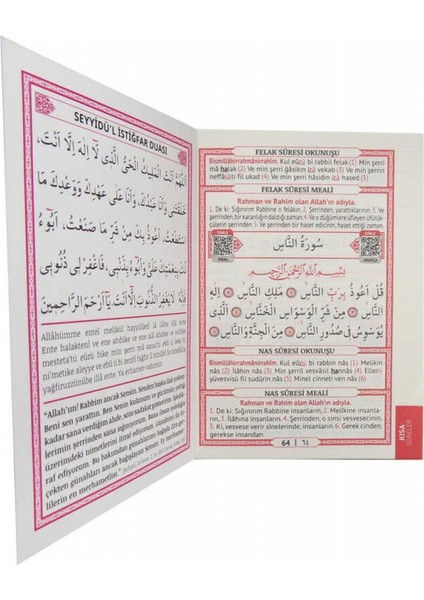 SEYYİDÜ'L İSTİĞFAR DUASI
اَللّٰهُمَّ اَنْتَ الْمَلِيكُ الْحَىُّ الَّذِى لَا اِلٰهَ اِلَّا اَنْتَ،
خَلَقْتَنِى وَاَنَا عَبْدُكَ، وَاَنَا عَلَى عَهْدِكَ وَوَعْدِكَ مَا
اسْتَطَعْتُ، اَعُوذُ بِكَ مِنْ شَرِّ مَا صَنَعْتُ، اَبُوءُ
لَكَ بِنِعْمَتِكَ عَلَىَّ وَاَبُوءُ بِذَنْبِى، فَاغْفِرْلِى ذُنُوبِى
فَاِنَّهُ لَا يَغْفِرُ الذُّنُوبَ اِلَّا اَنْتَ. يَا اَرْحَمَ الرَّاحِمِينَ
Allâhümme entel melikül hayyüllezî lâ ilâhe illâ ente.
Ente halaktenî ve ene abdüke ve ene alâ ahdike ve
mesteta'tü eûzü bike min şerri mâ
ni'metike aleyye ve ebû
yağfiruzzünûbe illâ ente. Ya erhamer-rahimîn.
"Allah'ım! Rabbim ancak Sensin. Senden başka ilah yoktur.
Beni sen yarattın. Ben Senin kulunum ve gücümün yettiği
kadar sana verdiğim ahde, söze sadakat gösteriyorum. İşlediğ
lerimin şerrinden sana sığınıyorum. Bana ihsan ettiğin
üzerimdeki nimetlerini itiraf ediyorum. Günahımı da iti-
raf ediyorum. Bu bakımdan günahlarımı bağışla Zira ger-
çekten günahları ancak bağışlayan Sensin. Ey merhamet-
lilerin en merhametlisi."
FELAK SÛRESİ OKUNUŞU
Bismillâhirrahmânirrahîm. Kul eûzü bi rabbil felak (1) Min şerri
mâ halak (2) Ve min şerri ğâsikın izâ vekab (3) Ve min şerrin
neffâsâti fil ukad (4) Ve min şerri hâsidin izâ hased (5)
FELAK SÛRESİ MEALİ
Rahman ve Rahim olan Allah'ın adıyla.
1. De ki: Sığınırım Rabbine o felâkın. 2. Şerrinden, yarattıklarının. 3. Ve
şerrinden, bir karanlığın daldığı zaman. 4. Ve o düğümlere üfleyen üfürük-
çülerin şerrinden. 5. Ve şerrinden bir haset edicinin, haset ettiği zaman.
DİNLE
MEAL
سُورَةُ النَّاسِ
DİNLE
ARAPÇA
بِسْمِ اللّٰهِ الرَّحْمٰنِ الرَّحِيمِ
قُلْ اَعُوذُ بِرَبِّ النَّاسِ ۝ مَلِكِ النَّاسِ ۝ اِلٰهِ
النَّاسِ ۝ مِنْ شَرِّ الْوَسْوَاسِ الْخَنَّاسِ ۝ الَّذِى
يُوَسْوِسُ فِى صُدُورِ النَّاسِ ۝ مِنَ الْجِنَّةِ وَالنَّاسِ
NAS SÛRESİ OKUNUŞU
Bismillâhirrahmânirrahîm. Kul eûzü bi rabbin nâs (1) Melikin
nâs (2) İlâhin nâs (3) Min şerril vesvâsil hannâs (4) Ellezi
yüvesvisü fîi sudûrin nâs (5) Minel cinneti ven nâs (6)
NAS SÛRESİ MEALİ
Rahman ve Rahim olan Allah'ın adıyla.
1. De ki: Sığınırım Rabbine insanların, 2. Melikine insanla-
rın, 3. İlâhına insanların. 4. Şerrinden, o sinsi vesvesecinin.
5. Ki, vesvese verir sînelerinde, insanların. 6. Gerek cinden,
gerekse insandan.
64 | ٦٤
KISA
SÛRELER